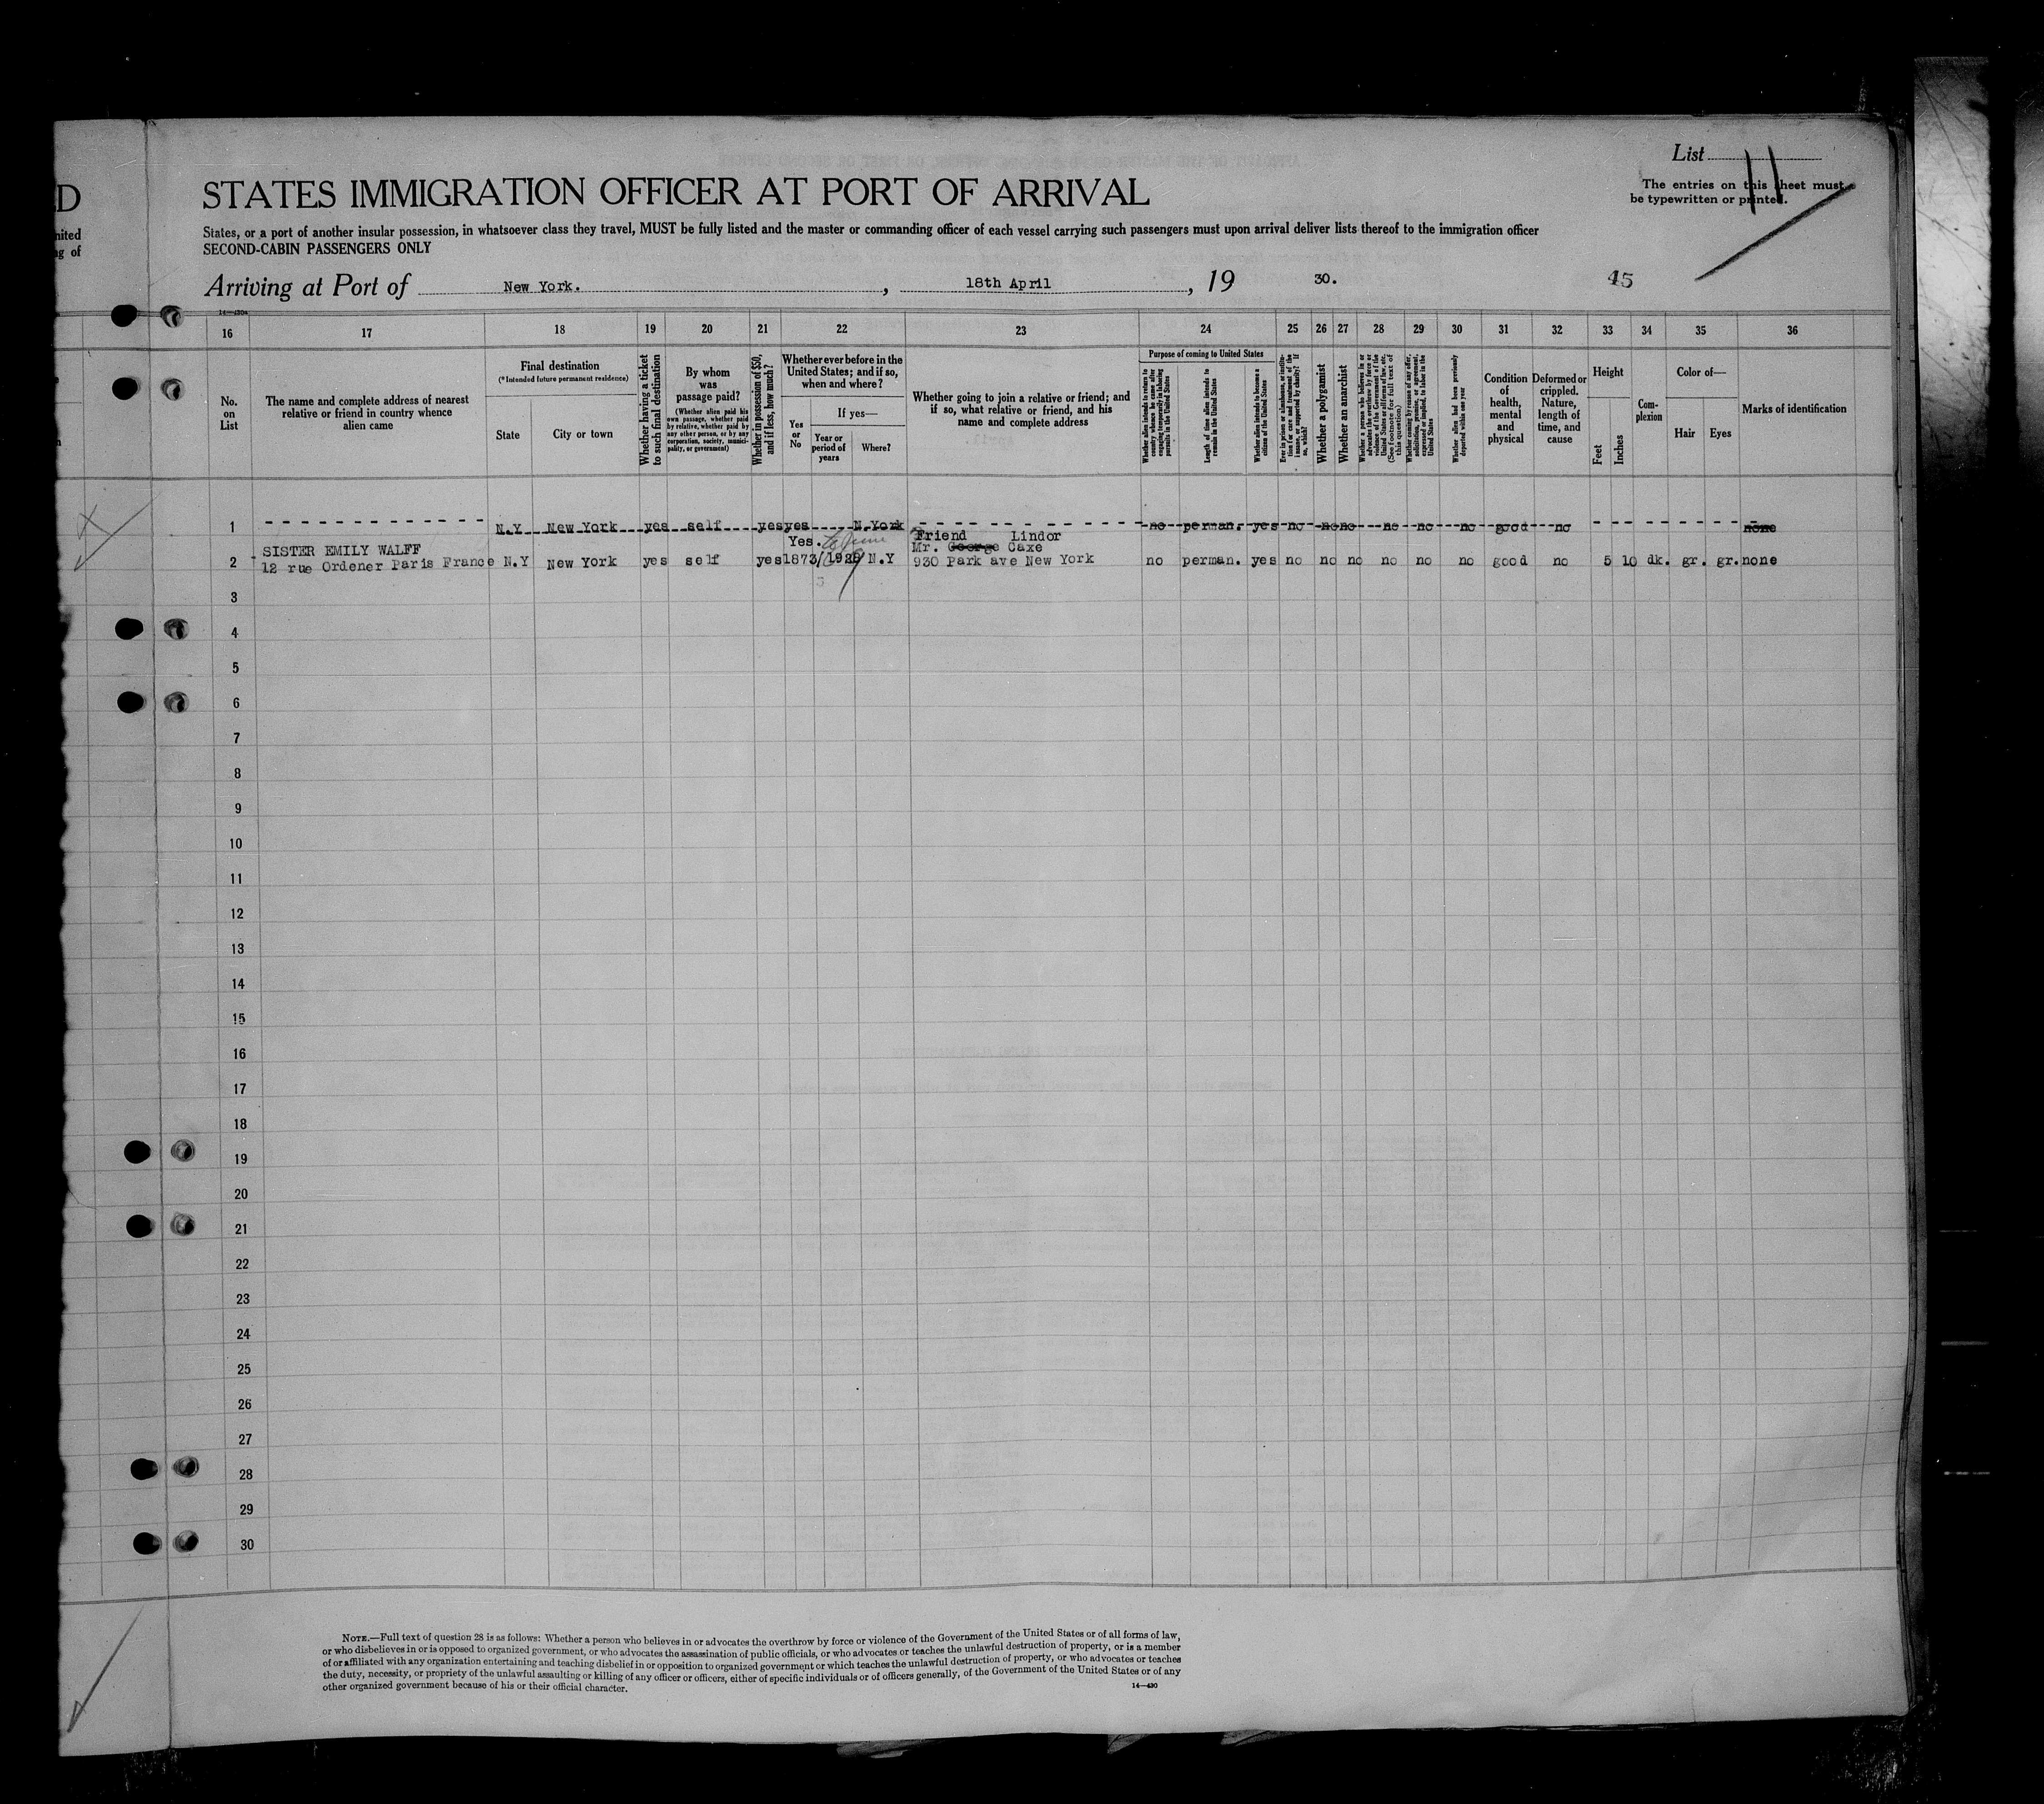 D
nited
ng of
List 11
The entries on this sheet must
be typewritten or printed.
STATES IMMIGRATION OFFICER AT PORT OF ARRIVAL
States, or a port of another insular possession, in whatsoever class they travel, MUST be fully listed and the master or commanding officer of each vessel carrying such passengers must upon arrival deliver lists thereof to the immigration officer
SECOND-CABIN PASSENGERS ONLY
Arriving at Port of New York. , 18th April , 19 30. 45
16 17 18 19 20 21 22 23 24 25 26 27 28 29 30 31 32 33 34 35 36
No.
on
List
The name and complete address of nearest
relative or friend in country whence
alien came
Final destination
(*Intended future permanent residence)
State
City or town
Whether having a ticket
to such final destination
By whom
was
passage paid?
(Whether alien paid his
own passage, whether paid
by relative, whether paid by
any other person, or by any
corporation, society, munici-
pality, or government)
Whether in possession of $50,
and if less, how much?
Whether ever before in the
United States; and if so,
when and where?
Yes
or
No
If yes—
Year or
period of
years
Where?
Whether going to join a relative or friend; and
if so, what relative or friend, and his
name and complete address
Purpose of coming to United States
Whether alien intends to return to
country whence he came after
engaging temporarily in laboring
pursuits in the United States
Length of time alien intends to
remain in the United States
Whether alien intends to become a
citizen of the United States
Ever in prison or almshouse, or institu-
tion for care and treatment of the
insane, or supported by charity? If
so, which?
Whether a polygamist
Whether an anarchist
Whether a person who believes in or
advocates the overthrow by force or
violence of the Government of the
United States or all forms of law, etc.
(See footnote for full text of
this question)
Whether coming by reason of any offer,
solicitation, promise, or agreement,
expressed or implied, to labor in the
United States
Whether alien had been previously
deported within one year
Condition
of
health,
mental
and
physical
Deformed or
crippled.
Nature,
length of
time, and
cause
Height
Feet
Inches
Com-
plexion
Color of—
Hair
Eyes
Marks of identification
1 N.Y New York yes self yes yes N.York no perman. yes no no no no no no good no none
Yes. to June Friend Lindor
SISTER EMILY WALFF Mr. George Caxe
2 12 rue Ordener Paris France N.Y New York yes self yes 1873/1929 N.Y 930 Park ave New York no perman. yes no no no no no no good no 5 10 dk. gr. gr. none
3
4
5
6
7
8
9
10
11
12
13
14
15
16
17
18
19
20
21
22
23
24
25
26
27
28
29
30
NOTE.—Full text of question 28 is as follows: Whether a person who believes in or advocates the overthrow by force or violence of the Government of the United States or of all forms of law,
or who disbelieves in or is opposed to organized government, or who advocates the assassination of public officials, or who advocates or teaches the unlawful destruction of property, or is a member
of or affiliated with any organization entertaining and teaching disbelief in or opposition to organized government or which teaches the unlawful destruction of property, or who advocates or teaches
the duty, necessity, or propriety of the unlawful assaulting or killing of any officer or officers, either of specific individuals or of officers generally, of the Government of the United States or of any
other organized government because of his or their official character.
14—430